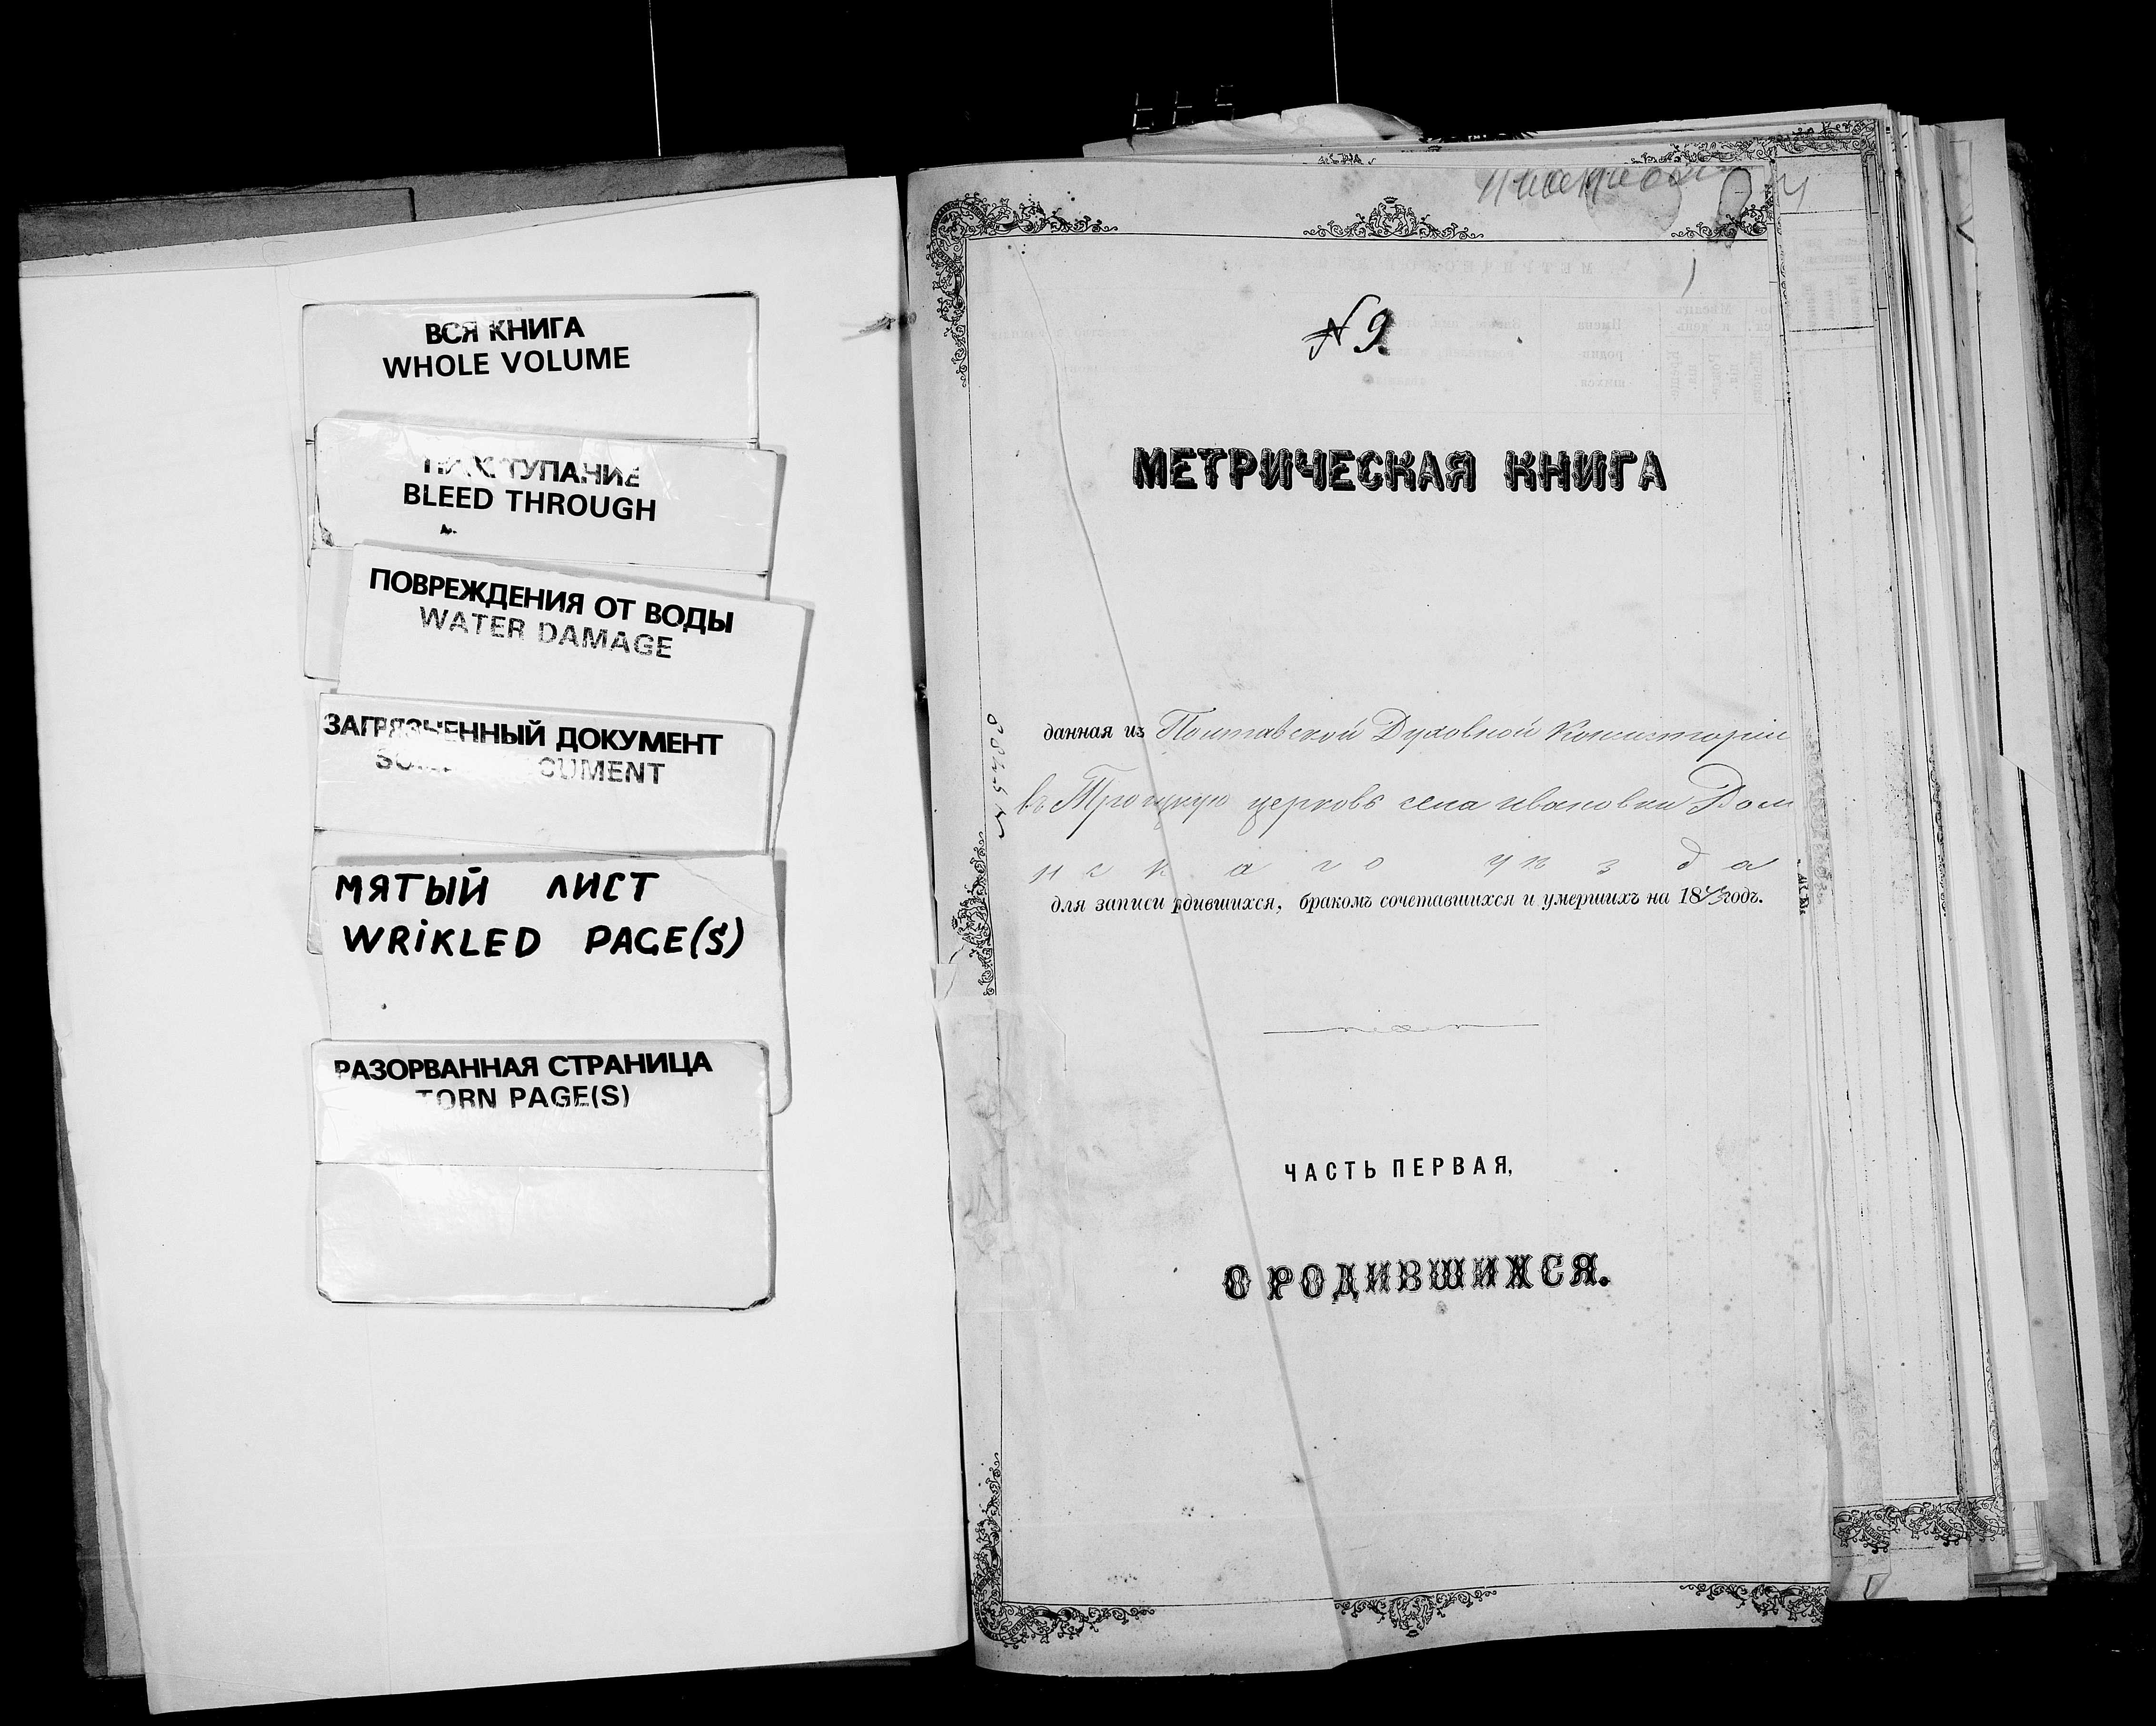 ВСЯ КНИГА
WHOLE VOLUME
BLEED THROUGH
ПОВРЕЖДЕНИЯ ОТ ВОДЫ
WATER DAMAGE
ЗАГРЯЗНЕННЫЙ ДОКУМЕНТ
МЯТЫЙ ЛИСТ
WRIKLED PAGE(S)
РАЗОРВАННАЯ СТРАНИЦА
TORN PAGE(S)
№ 9
МЕТРИЧЕСКАЯ КНИГА
данная изъ Полтавской Духовной Консисторіи
въ Троицкую церковь села Ивановки
нскаго уѣзда
для записи родившихся, бракомъ сочетавшихся и умершихъ на 18 годъ.
ЧАСТЬ ПЕРВАЯ,
О РОДИВШИХСЯ.